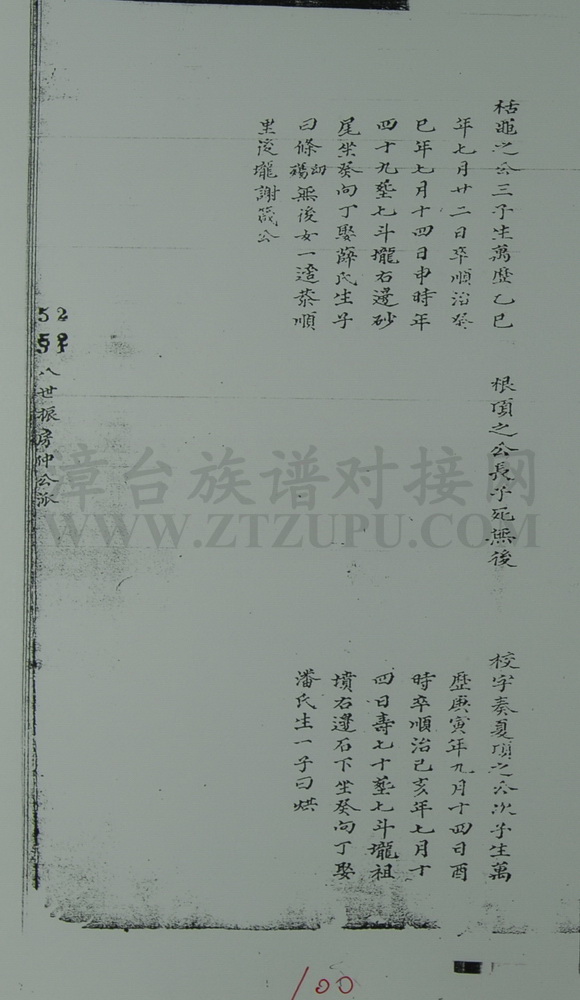 枯頊之公三子生萬歷乙巳
年七月廿二日卒順治癸
巳年七月十四日申時年
四十九塟七斗壠右邊砂
尾坐癸向丁娶薛氏生子
曰條幼殤無後女一適蔡順
里後壠謝
公
根頊之公長子死無後
校字奏夏頊之公次子生萬
歷庚寅年九月十四日酉
時卒順治己亥年七月十
四日壽七十塟七斗壠祖
墳右邊石下坐癸向丁娶
潘氏生一子曰烘
52
八世振房仲公派
漳台族谱对接网
WWW.ZTZUPU.COM
100